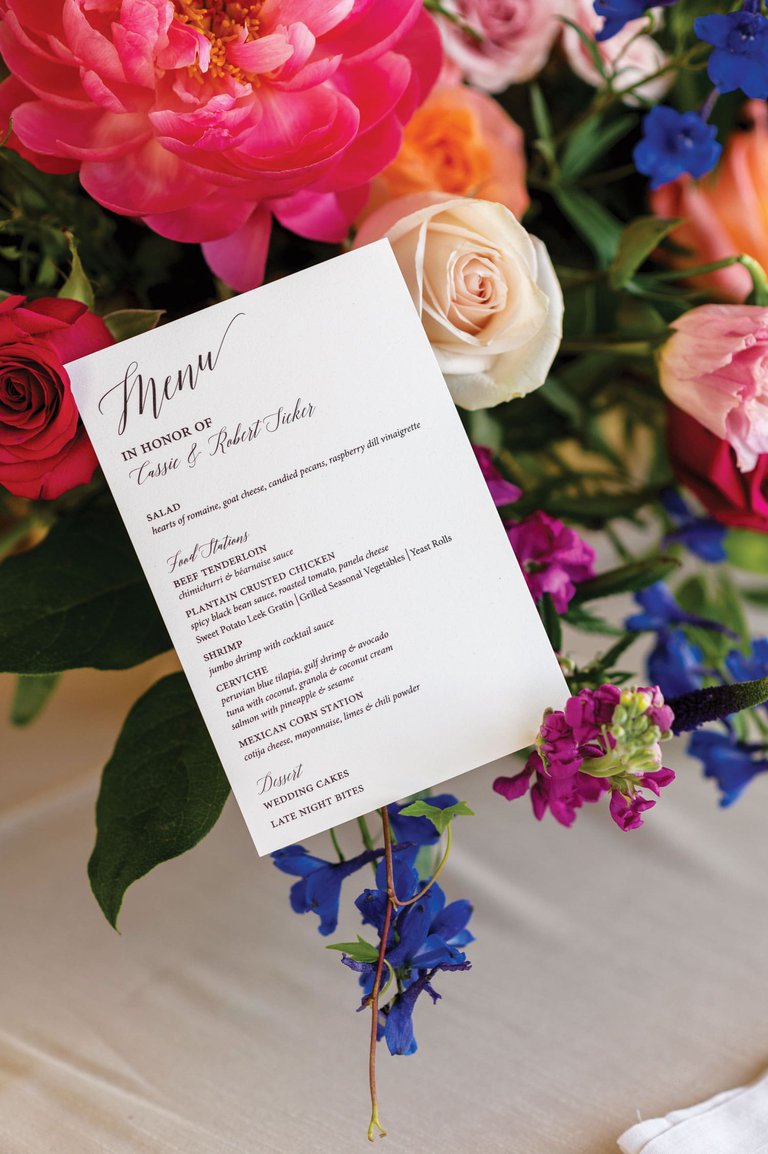 Menu
IN HONOR OF
Cassie & Robert Sicker
SALAD
hearts of romaine, goat cheese, candied pecans, raspberry dill vinaigrette
Food Stations
BEEF TENDERLOIN
chimichurri & béarnaise sauce
PLANTAIN CRUSTED CHICKEN
spicy black bean sauce, roasted tomato, panela cheese
Sweet Potato Leek Gratin | Grilled Seasonal Vegetables | Yeast Rolls
SHRIMP
jumbo shrimp with cocktail sauce
CERVICHE
peruvian blue tilapia, gulf shrimp & avocado
tuna with coconut, granola & coconut cream
salmon with pineapple & sesame
MEXICAN CORN STATION
cotija cheese, mayonnaise, limes & chili powder
Dessert
WEDDING CAKES
LATE NIGHT BITES